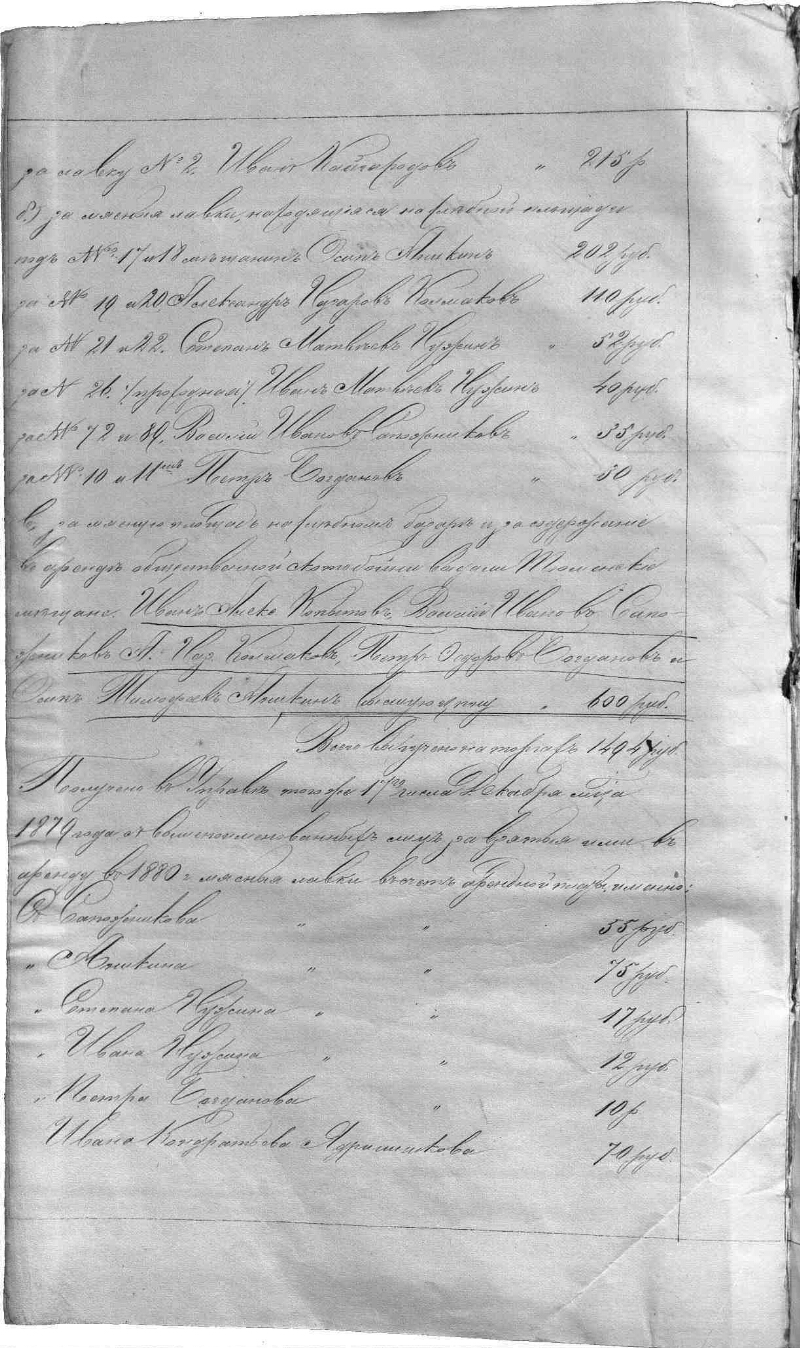 за лавку № 2. Иванъ Кайгородовъ " 215 р
б.) за мясныя лавки, находящіяся на хлѣбной площади
подъ №№ 17 и 18 мѣщанинъ Осипъ Яшкинъ 202 руб.
за №№ 19 и 20, Александръ Назаровъ Колмаковъ 110 руб.
за №№ 21 и 22. Степанъ Матвѣевъ Нужинъ " 52 руб.
за № 26. /проходной/ Иванъ Матвѣевъ Нужинъ 40 руб.
за №№ 72 и 80, Василій Ивановъ Сапожниковъ " 55 руб.
за №№ 10 и 11 Петръ Богдановъ " 50 руб.
в, за мясную площадь на хлѣбномъ базарѣ и за содержаніе
въ арендѣ общественной скотобойни Тюменскіе
мѣщане. Иванъ Алексѣ Копытовъ, Василій Ивановъ Сапо-
жниковъ А. Наз. Колмаковъ, Петръ Ѳедоровъ Богдановъ и
Осипъ Тимофѣевъ Яшкинъ высшую цѣну " 600 руб.
Всего выручено на торгахъ 1494 руб
Получено въ Управѣ тогоже 17го числа Декабря мѣца
1879 года отъ вышепоименованныхъ лицъ, за взятыя ими въ
аренду въ 1880 г мясныя лавки въ счетъ арендной платы, именно:
Отъ Сапожникова " " 55 руб.
" Яшкина " " 75 руб.
" Степана Нужина " " 17 руб.
" Ивана Нужина " " 12 руб
" Петра Богданова " 10 р
Ивана Кондратьева Ядрышникова 70 руб.